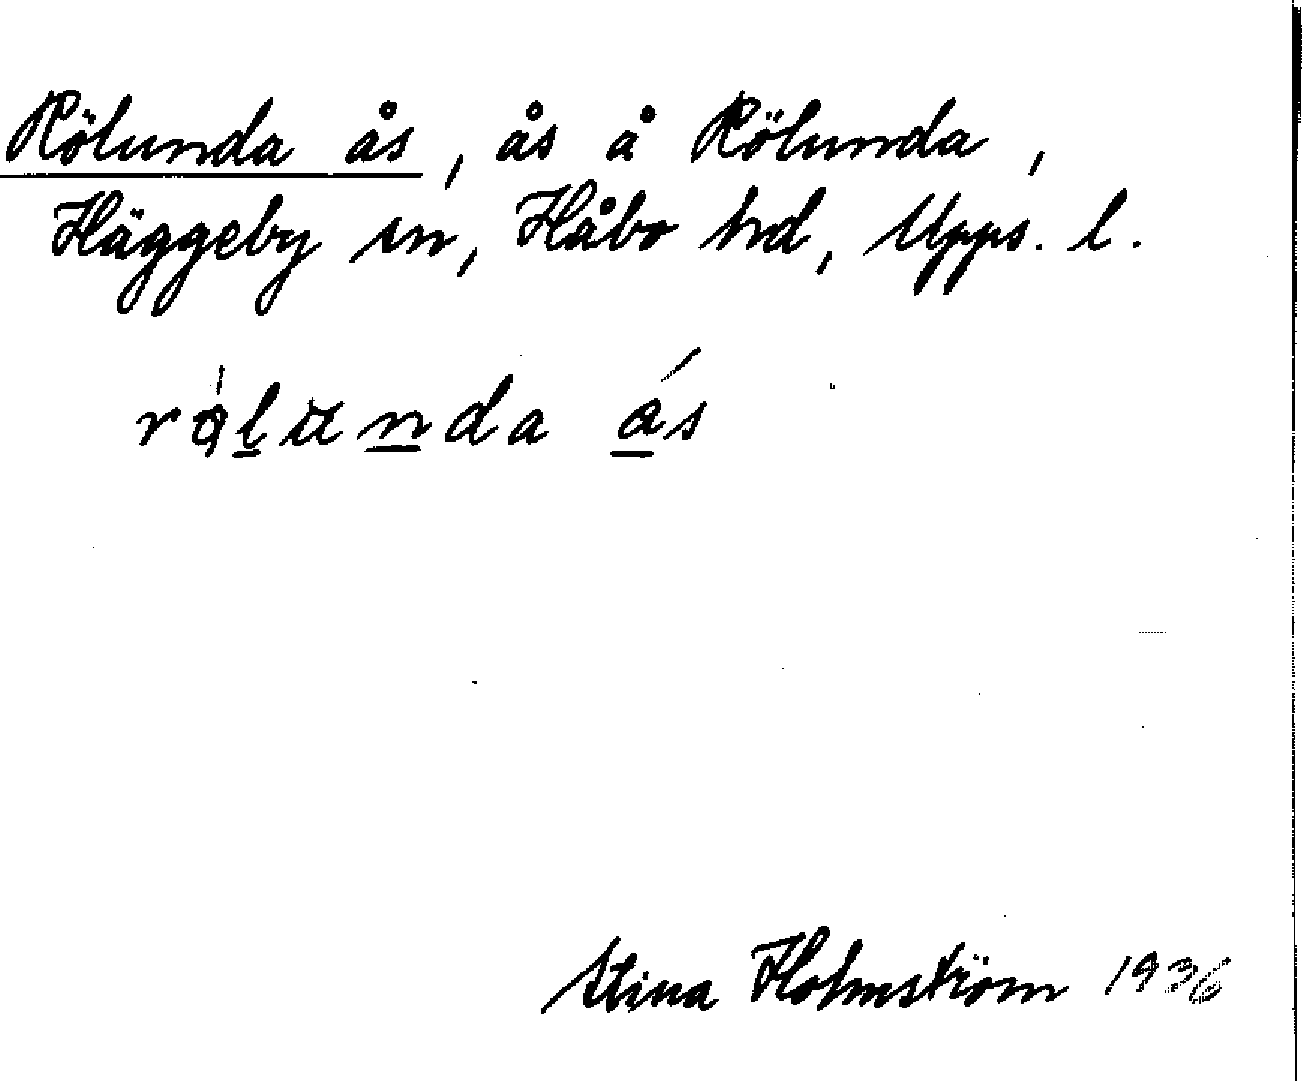 Rölunda ås, ås å Rölunda,
Häggeby sn, Håbo hd, Upps. l.
rölunda ås
Stina Holmström 1936